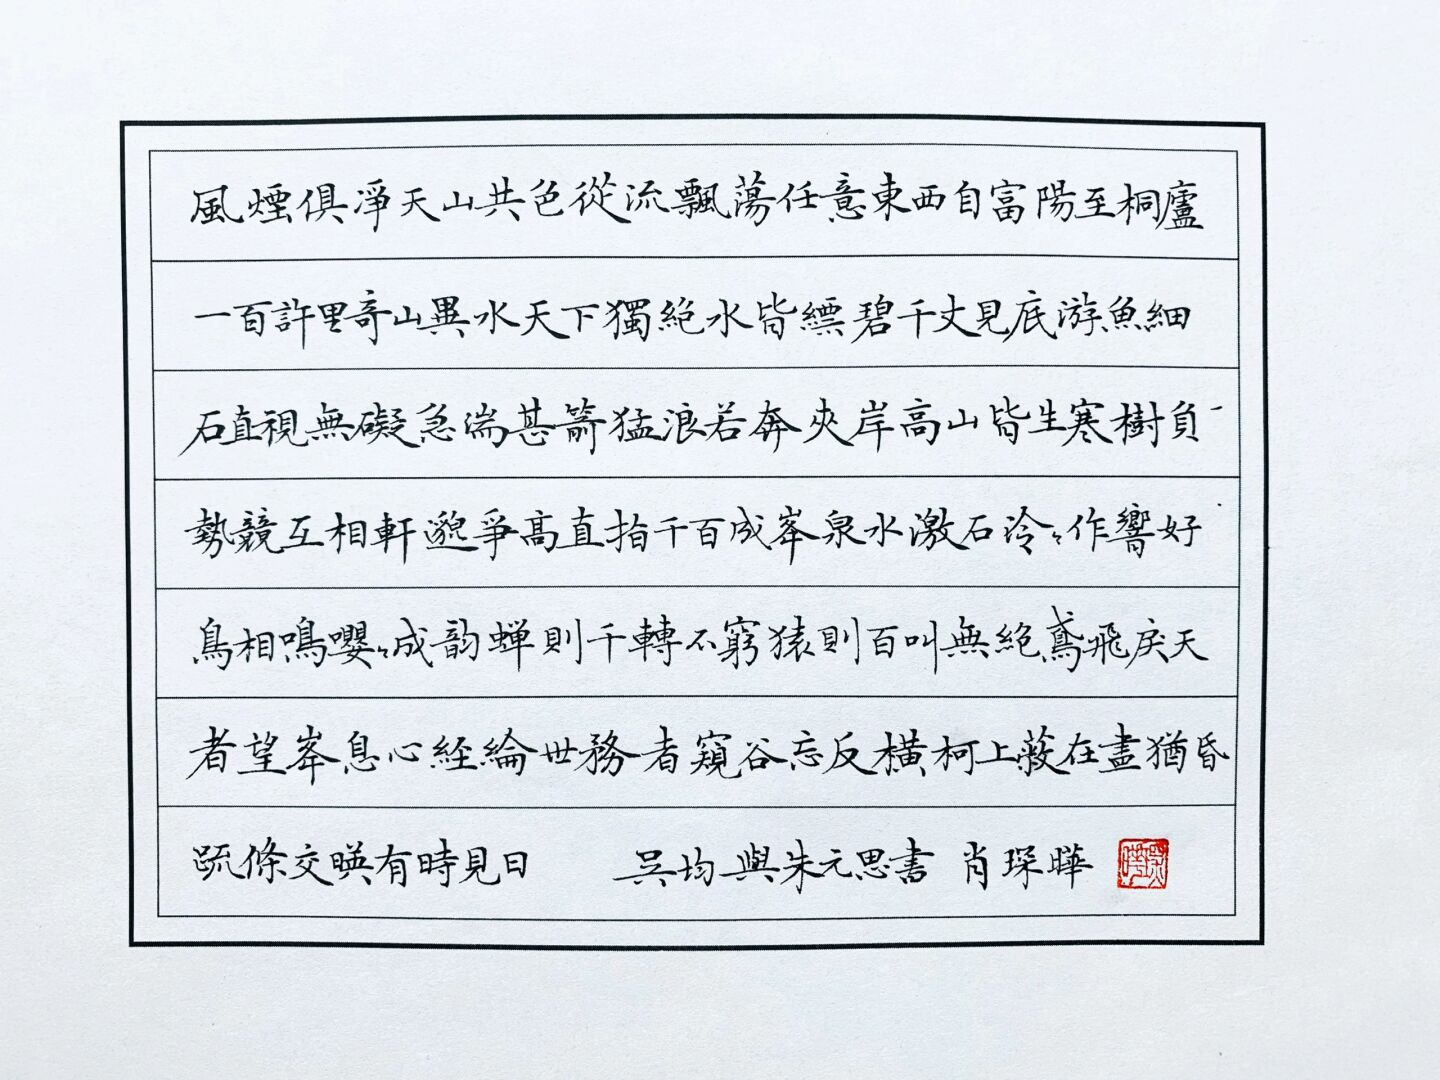 風煙俱淨天山共色從流飄蕩任意東西自富陽至桐廬
一百許里奇山異水天下獨絕水皆縹碧千丈見底游魚細
石直視無礙急湍甚箭猛浪若奔夾岸高山皆生寒樹負
勢競互相軒邈爭高直指千百成峯泉水激石泠〻作響好
鳥相鳴嚶〻成韵蝉則千轉不窮猿則百叫無絕鳶飛戾天
者望峯息心経綸世務者窺谷忘反橫柯上蔽在晝猶昏
疏條交暎有時見日 吴均與朱元思書 肖琛曄